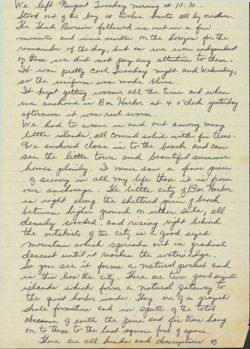 We left Newport Tuesday morning at 10:30.
Stood out of the bay at twelve knots all by ourselves.
The Third Division followed us out in a few
minutes and were visible on the horizon for the
remainder of the day, but as we were independent
of them we did not pay any attention to them.
It was pretty cool Tuesday night and Wednesday,
so the uniform was made blue.
It kept getting warmer all the time and when
we anchored in Bar Harbor at 4 o'clock yesterday
afternoon it was real warm.
We had to weave in and out among many
little islands, all covered solid with fir trees.
We anchored close in to the beach and can
see the little town and beautiful summer
homes plainly. I never saw a finer piece
of scenery in all my life than is from
our anchorage. The little city of Bar Harbor
is right along the sheltered piece of beach
between higher ground on either side, all
densely wooded and rising right behind
the outskirts of the city is a good sized
mountain which spreads out in gradual
descent until it reaches the water's edge.
So you see it forms a natural pocket and
in this lies the city. There are two good sized
islands which form a natural gateway to
the quiet harbor inside. They are of a grayish
shale formation and in spite of the total
absence of earth the pine and fir trees hang
on to them to the last square foot of space.
There are all kinds and descriptions of